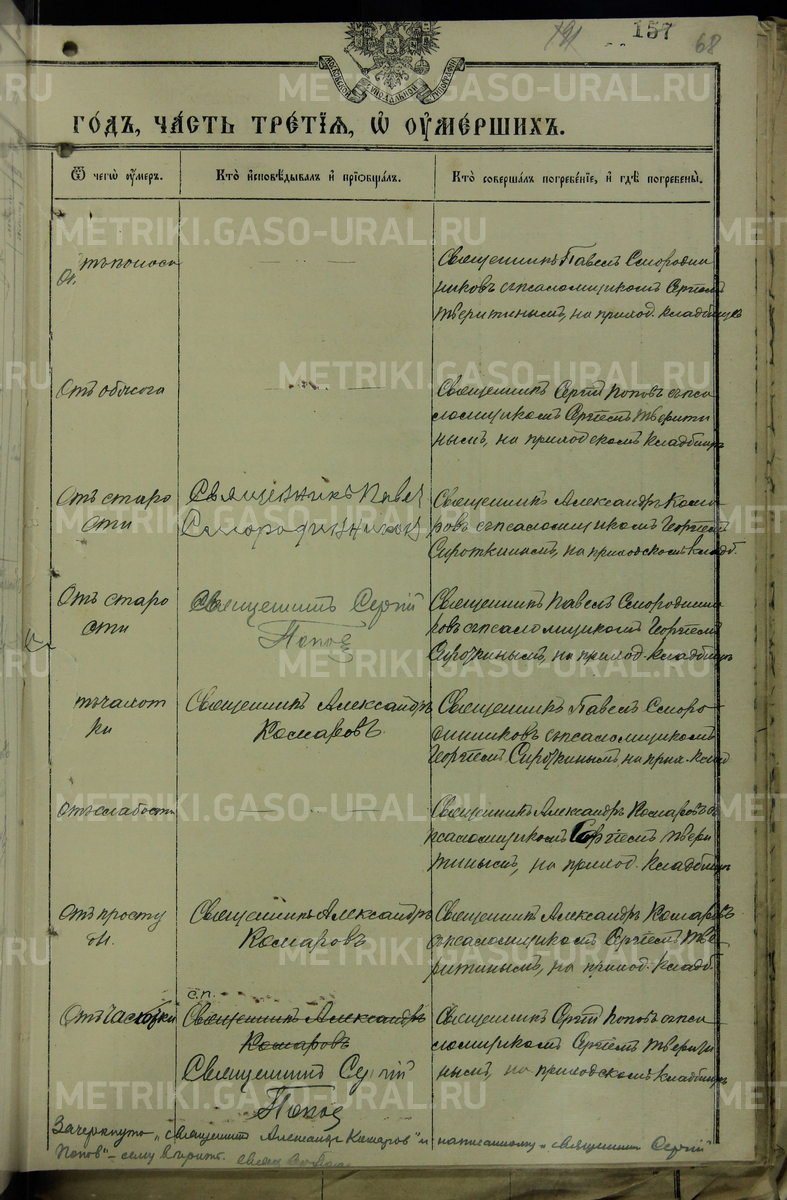 157
68
ГОДЪ, ЧАСТЬ ТРЕТІЯ, Ѿ ОУМЕРШИХЪ.
Ѿ чегѡ оумеръ.
Кто исповѣдывалъ и пріобщалъ.
Кто совершалъ погребеніе, и гдѣ погребены.
METRIKI.GASO-URAL.RU
Отъ поноса
Священникъ Павелъ Смородин
никовъ съ псаломщикомъ Сергіемъ
Тверитинымъ, на приход. кладбищѣ
Отъ обжога
Священникъ Сергій Поповъ съ пса
ломщикомъ Сергіемъ Тверити
нымъ, на приходскомъ кладбищѣ
Отъ старо
сти
Священникъ Павелъ
Смородинниковъ
Священникъ Александръ Кома
ровъ съ псаломщикомъ Георгіемъ
Сироткинымъ, на приходскомъ кладб.
Отъ старо
сти
Священникъ Сергій
Поповъ
Священникъ Павелъ Смородинни
ковъ съ псаломщикомъ Георгіемъ
Сироткинымъ, на приход. кладбищѣ
отъ чахот
ки
Священникъ Александръ
Комаровъ
Священникъ Павелъ Сморо
динниковъ съ псаломщикомъ
Георгіемъ Сироткинымъ на прих. клад
Отъ слабости
Священникъ Александръ Комаровъ съ
псаломщикомъ Сергіемъ Твери
тинымъ, на приход. кладбищѣ
Отъ просту
ды.
Священникъ Александръ
Комаровъ
Священникъ Александръ Комаровъ
съ псаломщикомъ Сергіемъ Тве
ритинымъ, на приход. кладб.
Отъ чахотки
с.п.
Священникъ Александръ
Комаровъ
Священникъ Сергій
Поповъ
Священникъ Сергій Поповъ съ пса
ломщикомъ Сергіемъ Тверити
нымъ, на приходскомъ кладбищѣ
Зачеркнуто „священникъ Александръ Комаровъ" и написанному „священникъ Сергій
Поповъ" – сему вѣрить.